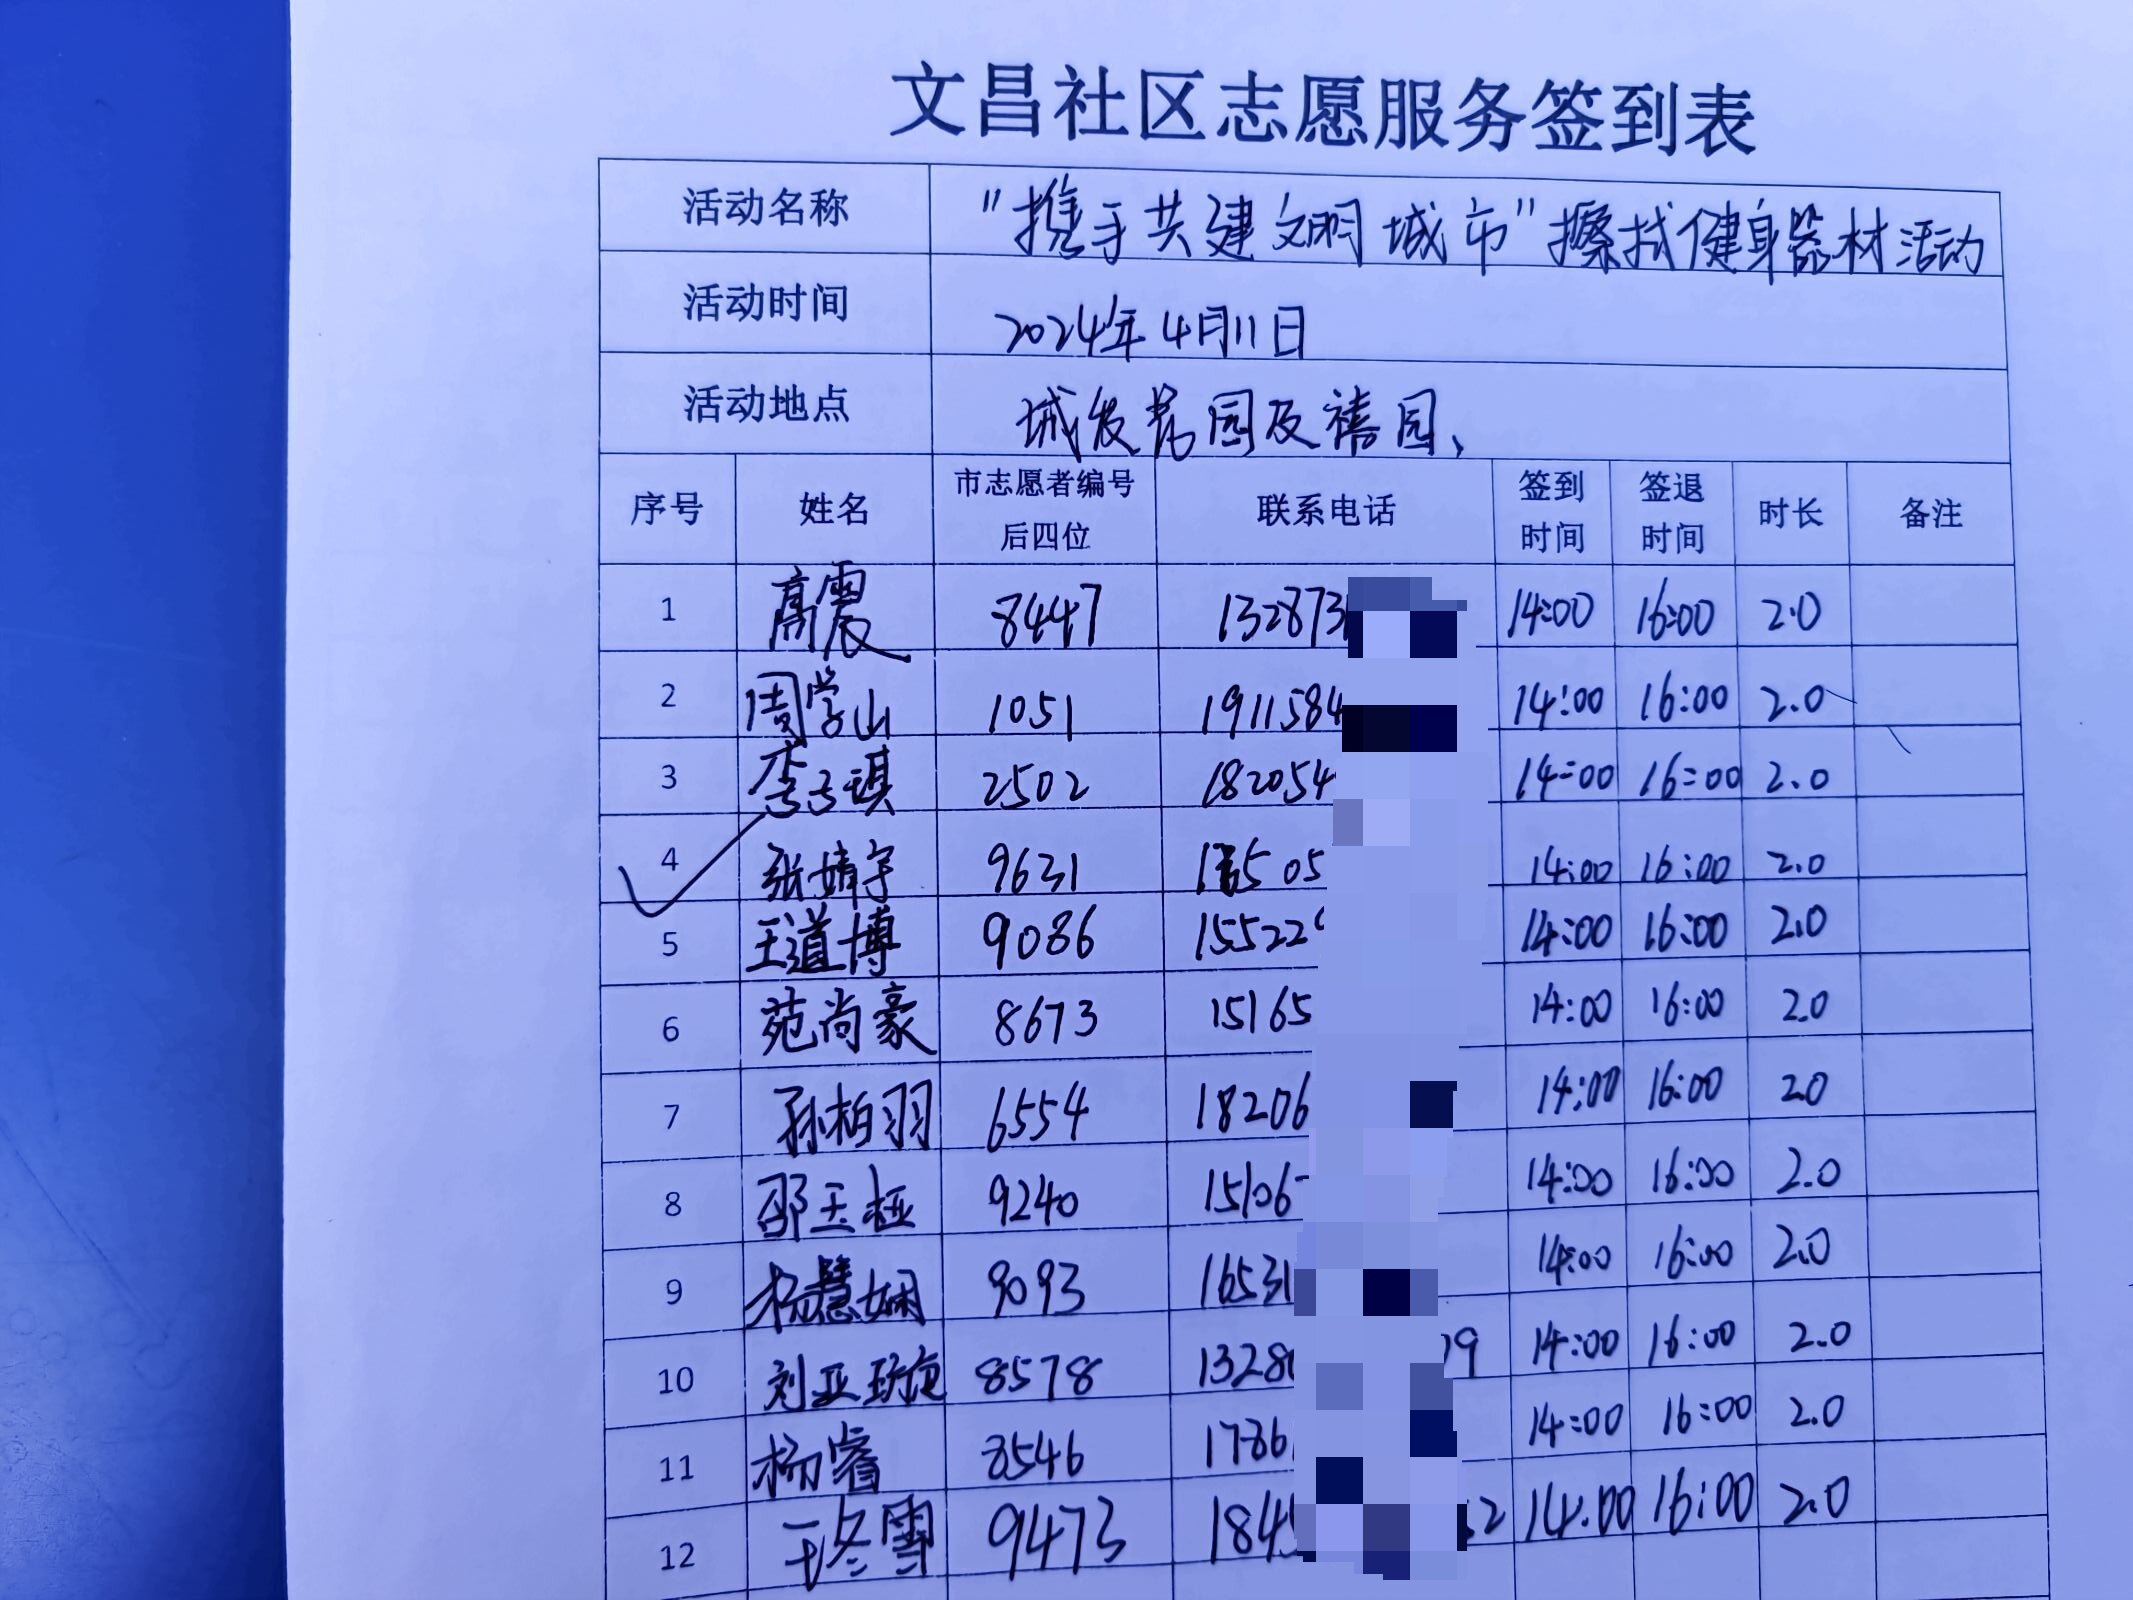 文昌社区志愿服务签到表
活动名称 "携手共建文明城市"擦拭健身器材活动
活动时间 2024年4月11日
活动地点 城发茗园及禧园、
序号 姓名 市志愿者编号后四位 联系电话 签到时间 签退时间 时长 备注
1 高震 8447 132873 14:00 16:00 2.0
2 周学山 1051 1911584 14:00 16:00 2.0
3 李子琪 2502 182054 14:00 16:00 2.0
4 张婧宇 9631 14:00 16:00 2.0
5 王道博 9086 15522 14:00 16:00 2.0
6 苑尚豪 8673 15165 14:00 16:00 2.0
7 孙柏羽 6554 18206 14:00 16:00 2.0
8 邵玉桠 9240 15106 14:00 16:00 2.0
9 杨慧娴 9093 16531 14:00 16:00 2.0
10 刘亚璇 8578 1328 9 14:00 16:00 2.0
11 杨睿 8546 1786 14:00 16:00 2.0
12 于冬雪 9473 184 2 14:00 16:00 2.0